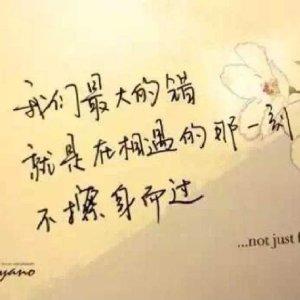 我们最大的错
就是在相遇的那一刻
不擦身而过
...not just
yano